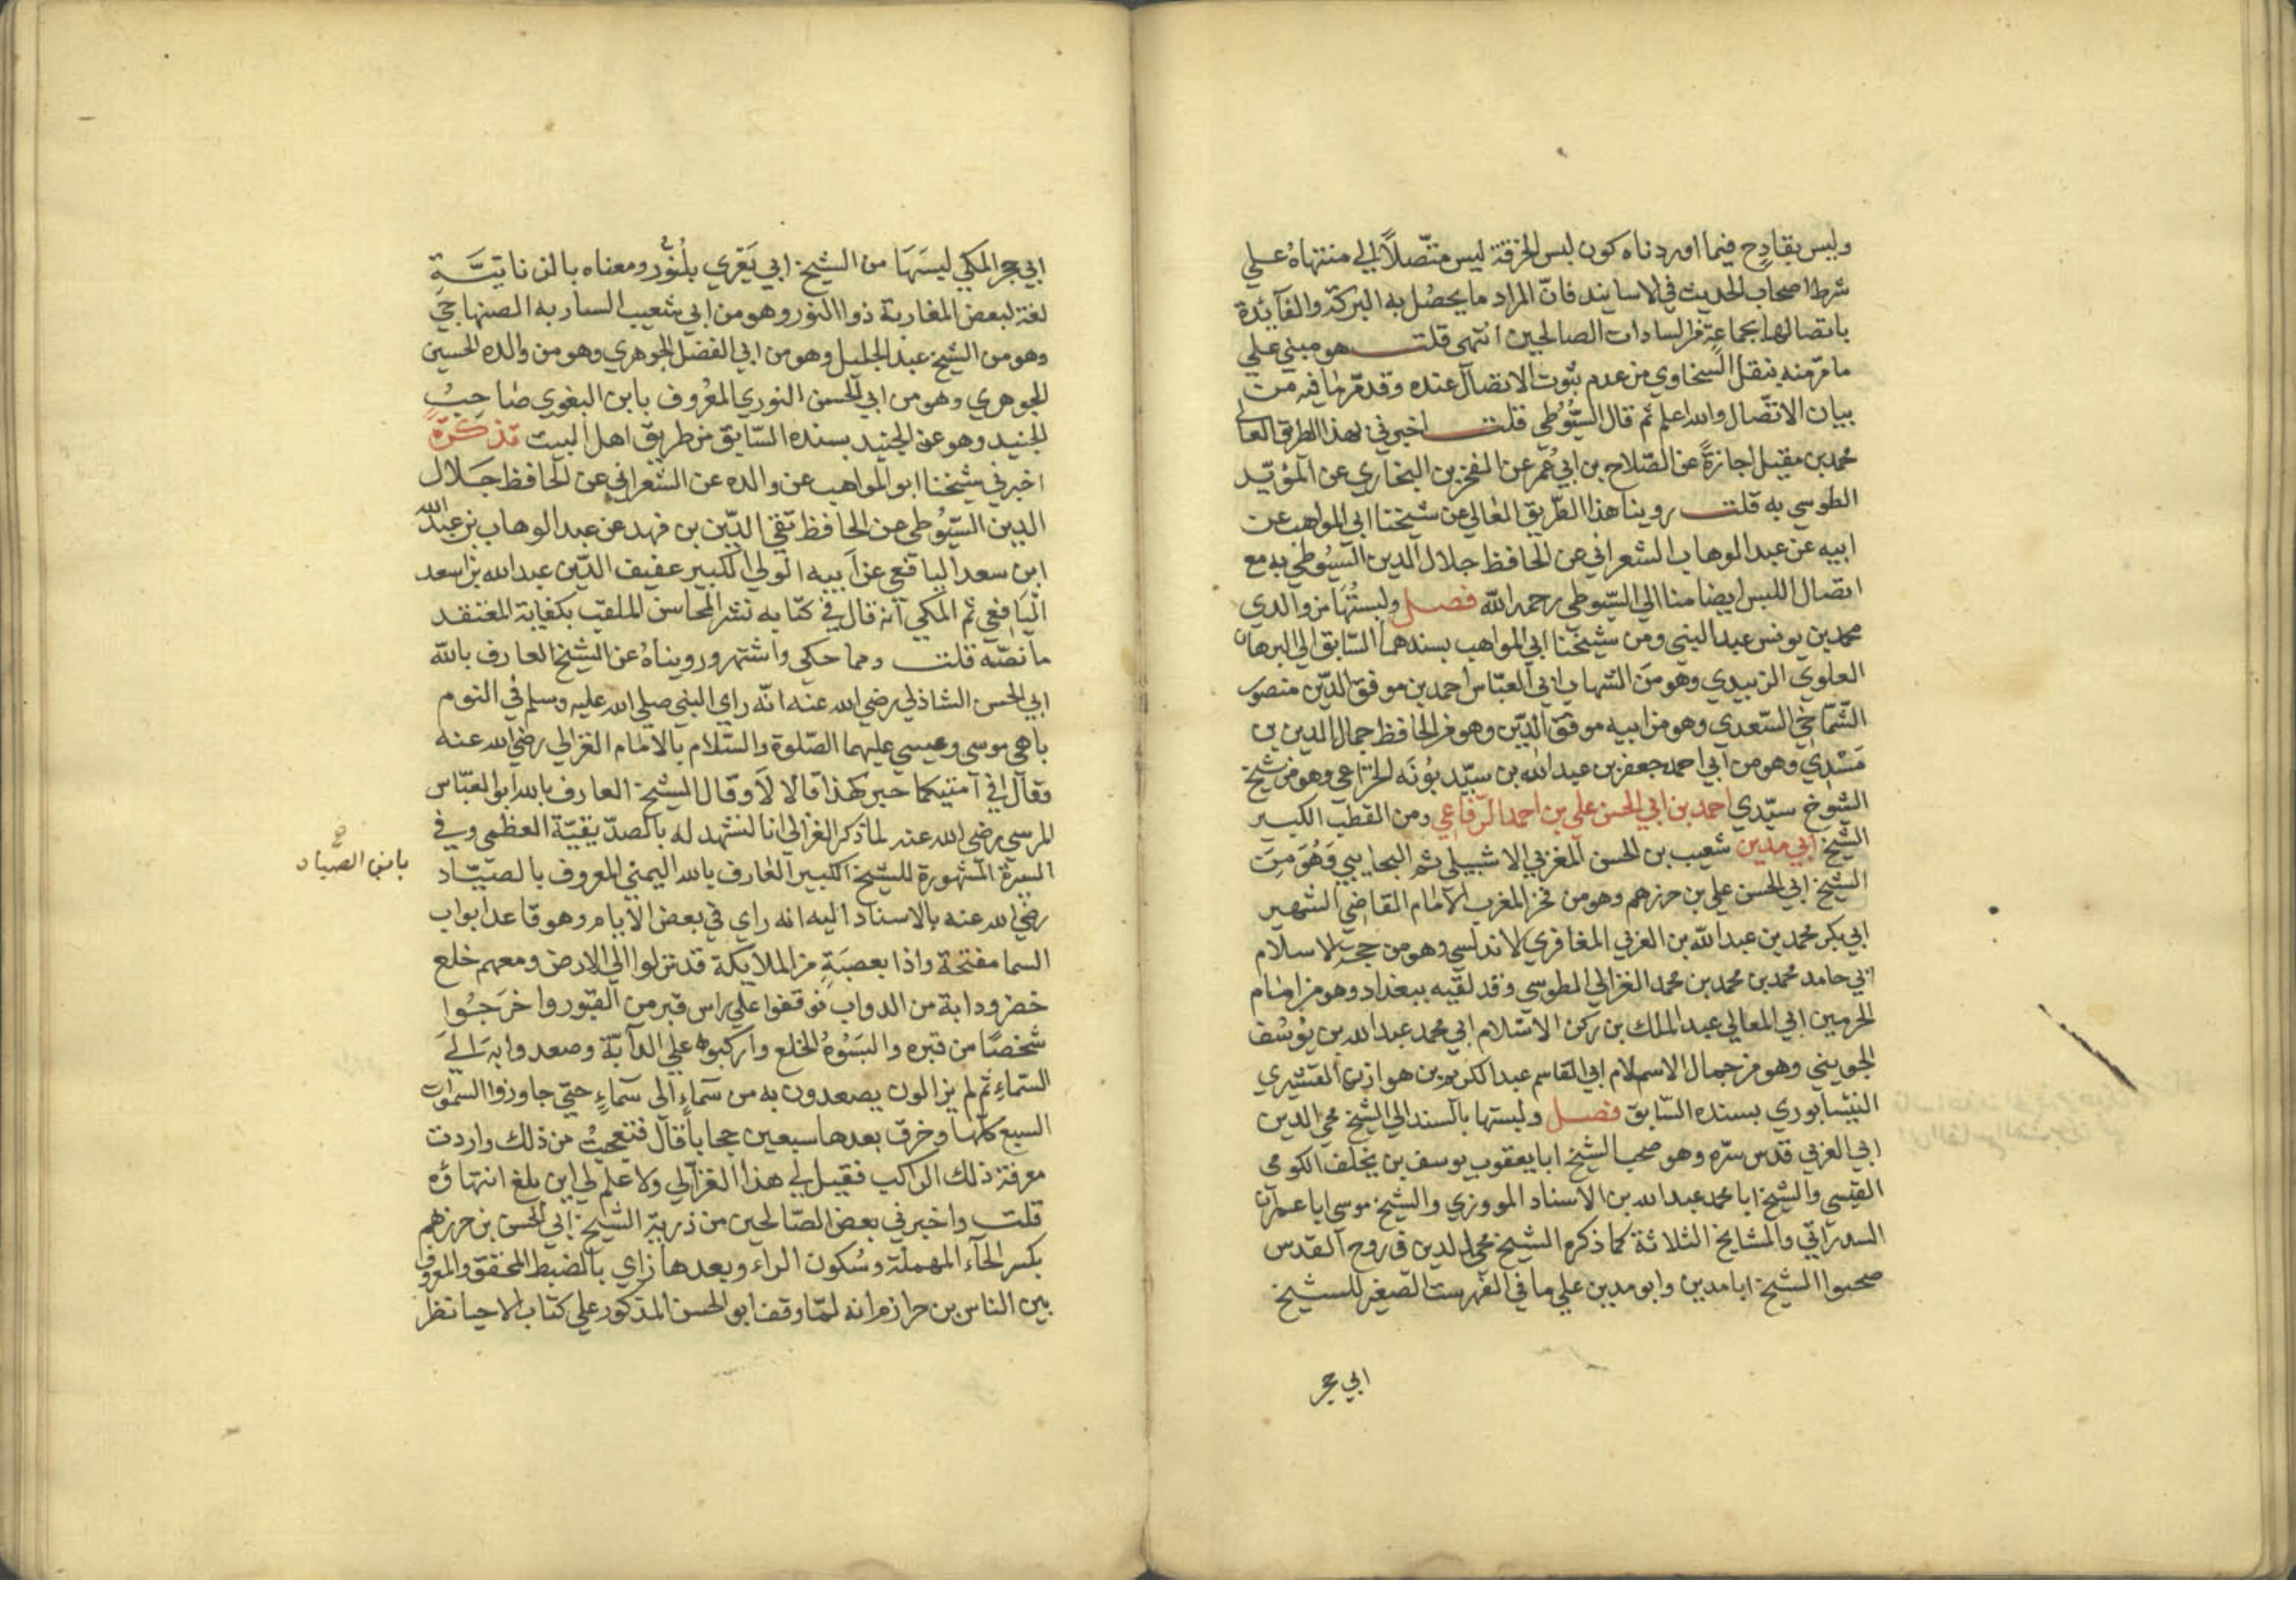 وليس بقادح فيما اوردناه كون لبس الخرقة ليس متّصلاً الي منتهاه علي
شرط اصحاب الحديث في الاسانيد فانّ المراد ما يحصل به البركة والفآيدة
باتصالها بجماعة من السادات الصالحين انتهى قلت هو مبني علي
ما مرّ منه بنقل السخاوي من عدم ثبوت الاتصال عنده وقد مرّ ما فيه من
بيان الاتّصال والله اعلم ثم قال السّيوطى قلت اخبرني بهذا الطريق العالي
محمد بن مقبل اجازةً عن الصّلاح بن ابي عُمر عن الفخر بن البخاري عن المؤيّد
الطوسي به قلت روينا هذا الطّريق العالي عن شيخنا ابي المواهب عن
ابيه عن عبد الوهاب الشعراني عن الحافظ جلال الدين السّيُوطي به مع
اتصال اللبس ايضا منا الي السّيوطي رحمه الله فصل ولبستُهَا من والدي
محمد بن يونس عبد النبي ومن شيخنا ابي المواهب بسندهما السّابق الي البرهان
العلوي الزبيدي وهو من الشهاب ابي العبّاس احمد بن موفق الدّين منصور
الشّماخي السّعدي وهو من ابيه موفق الدّين وهو من الحافظ جمال الدين بن
مَسْدي وهو من ابي احمد جعفر بن عبد الله بن سيّد بُونَه الخزاعي وهو من شيخ
الشّيوخ سيّدي احمد بن ابي الحسن علي بن احمد الرّفاعي ومن القطب الكبير
الشّيخ ابي مدين شعيب بن الحسن المغربي الاشبيلي ثم البجايي وَهُوَ مِنَ
الشّيخ ابي الحسن علي بن حرزهم وهو من فخر المغرب الامام القاضي الشهير
ابي بكر محمد بن عبد الله بن العربي المغافري الاندلسي وهو من حجة الاسلام
ابي حامد محمد بن محمد بن محمد الغزالي الطوسي وقد لقيه ببغداد وهو من امام
الحرمين ابي المعالي عبد الملك بن ركن الاسلام ابي محمد عبد الله بن يوسُف
الجويني وهو من جمال الاسلام ابي القاسم عبد الكريم بن هوازن القشيري
النيسابوري بسنده السّابق فصل ولبستها بالسند الي الشيخ محي الدين
ابي العربي قدّس سرّه وهو صحب الشيخ ابا يعقوب يوسف بن يخلف الكومي
القيسي والشّيخ ابا محمد عبد الله بن الاستاد المووزي والشيخ موسي ابا عمران
السدراتي والمشايخ الثلاثة كما ذكره الشيخ محي الدين في روح القدس
صحبوا الشيخ ابا مدين وابو مدين علي ما في الفهرست الصغير للشيخ
ابي حجر
ابي حجر المكي لبسَهَا من الشيخ ابي يَعَزّي يلنّور ومعناه بالزناتيّـة
لغة لبعض المغاربة ذو النور وهو من ابي شعيب السارية الصنهاجيّ
وهو من الشيخ عبد الجليل وهو من ابي الفضل الجوهري وهو من والده الحسين
الجوهري وهو من ابي الحسن النوري المعُروف بابن البغوي صَاحِبُ
الجنيد وهو عن الجنيد بسنده السّابق من طريق اهل البيت تذكرة
اخبرني شيخنا ابو المواهب عن والده عن الشعراني عن الحافظ جلال
الدين السّيُوطي عن الحافظ تقي الدّين بن فهد عن عبد الوهاب بن عبد الله
ابن سعد اليافعي عن ابيه الولي الكبير عفيف الدّين عبد الله بن اسعد
اليَافعي ثم المكي انه قال في كتابه نشر المحاسن الملقب بكفاية المعتقد
ما نصّه قلت ومما حكي واشتهر ورويناهُ عن الشيخ العارف بالله
ابي الحسن الشاذلي رضي الله عنه انّه راي النبي صلي الله عليه وسلم في النوم
باهي موسى وعيسي عليهما الصّلوة والسّلام بالامام الغزالي رضي الله عنه
وقال افي امتيكما حبر كهذا قالا لاَ وقال الشيخ العارف بالله ابو العبّاس
المرسي رضي الله عنه لما ذكر الغزالي انا لنشهد له بالصدّيقيّة العظمى وفي
السيرة المشهورة للشيخ الكبير العارف بالله اليمني المعروف بالصيّاد
بابن الصياد
رضي الله عنه بالاسناد اليه انه راي في بعض الايام وهو قاعد ابواب
السما مفتحة واذا بعصبَةٍ من الملايكة قد نزلوا الي الارض ومعهم خلع
خضر ودابة من الدواب فوقفوا علي راس قبر من القبور واخرَجُوا
شخصًا من قبره والبَسُوهُ الخلع واركبوه علي الدآبّة وصعدوا به الي
السّماءِ ثم لم يزالون يصعدون به من سماءٍ الى سماءٍ حتي جاوزوا السموات
السبع كلها وخرق بعدها سبعين حجاباً قال فتعجبتُ من ذلك واردت
معرفة ذلك الراكب فقيل لي هذا الغزالي ولا علم لي اين بلغ انتهاؤه
قلت واخبرني بعض الصّالحين من ذرية الشيخ ابي الحسن بن حرزهم
بكسر الحآء المهملة وسُكون الراء وبعدها زاي بالضبط المحقق والمعروف
بين الناس بن حرازم انه لمّا وقف ابو الحسن المذكور علي كتاب الاحيا نظر